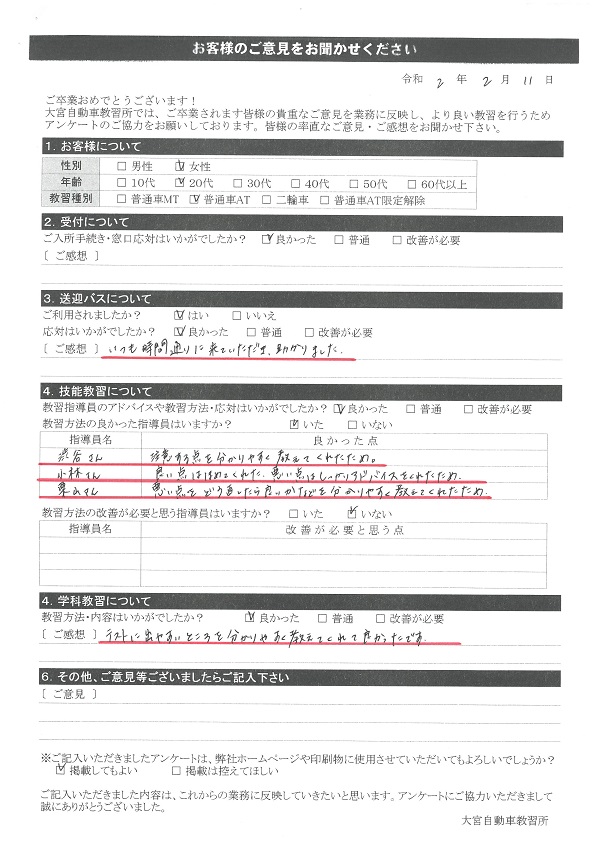 お客様のご意見をお聞かせください
令和 2 年 2 月 11 日
ご卒業おめでとうございます！
大宮自動車教習所では、ご卒業されます皆様の貴重なご意見を業務に反映し、より良い教習を行うため
アンケートのご協力をお願いしております。皆様の率直なご意見・ご感想をお聞かせ下さい。
1. お客様について
性別 □ 男性 ☑ 女性
年齢 □ 10代 ☑ 20代 □ 30代 □ 40代 □ 50代 □ 60代以上
教習種別 □ 普通車MT ☑ 普通車AT □ 二輪車 □ 普通車AT限定解除
2. 受付について
ご入所手続き・窓口応対はいかがでしたか？ ☑ 良かった □ 普通 □ 改善が必要
［ ご感想 ］
3. 送迎バスについて
ご利用されましたか？ ☑ はい □ いいえ
応対はいかがでしたか？ ☑ 良かった □ 普通 □ 改善が必要
［ ご感想 ］ いつも時間通りに来ていただき、助かりました。
4. 技能教習について
教習指導員のアドバイスや教習方法・応対はいかがでしたか？ ☑ 良かった □ 普通 □ 改善が必要
教習方法の良かった指導員はいますか？ ☑ いた □ いない
指導員名 良かった点
渋谷さん 注意する点を分かりやすく教えてくれたため。
小林さん 良い点はほめてくれた、悪い点はしっかりアドバイスをくれたため。
栗山さん 悪い点をどう直したら良いかなどを分かりやすく教えてくれたため
教習方法の改善が必要と思う指導員はいますか？ □ いた ☑ いない
指導員名 改善が必要と思う点
4. 学科教習について
教習方法・内容はいかがでしたか？ ☑ 良かった □ 普通 □ 改善が必要
［ ご感想 ］ テストに出やすいところを分かりやすく教えてくれて良かったです。
6. その他、ご意見等ございましたらご記入下さい
［ ご意見 ］
※ご記入いただきましたアンケートは、弊社ホームページや印刷物に使用させていただいてもよろしいでしょうか？
☑ 掲載してもよい □ 掲載は控えてほしい
ご記入いただきました内容は、これからの業務に反映していきたいと思います。アンケートにご協力いただきまして
誠にありがとうございました。
大宮自動車教習所